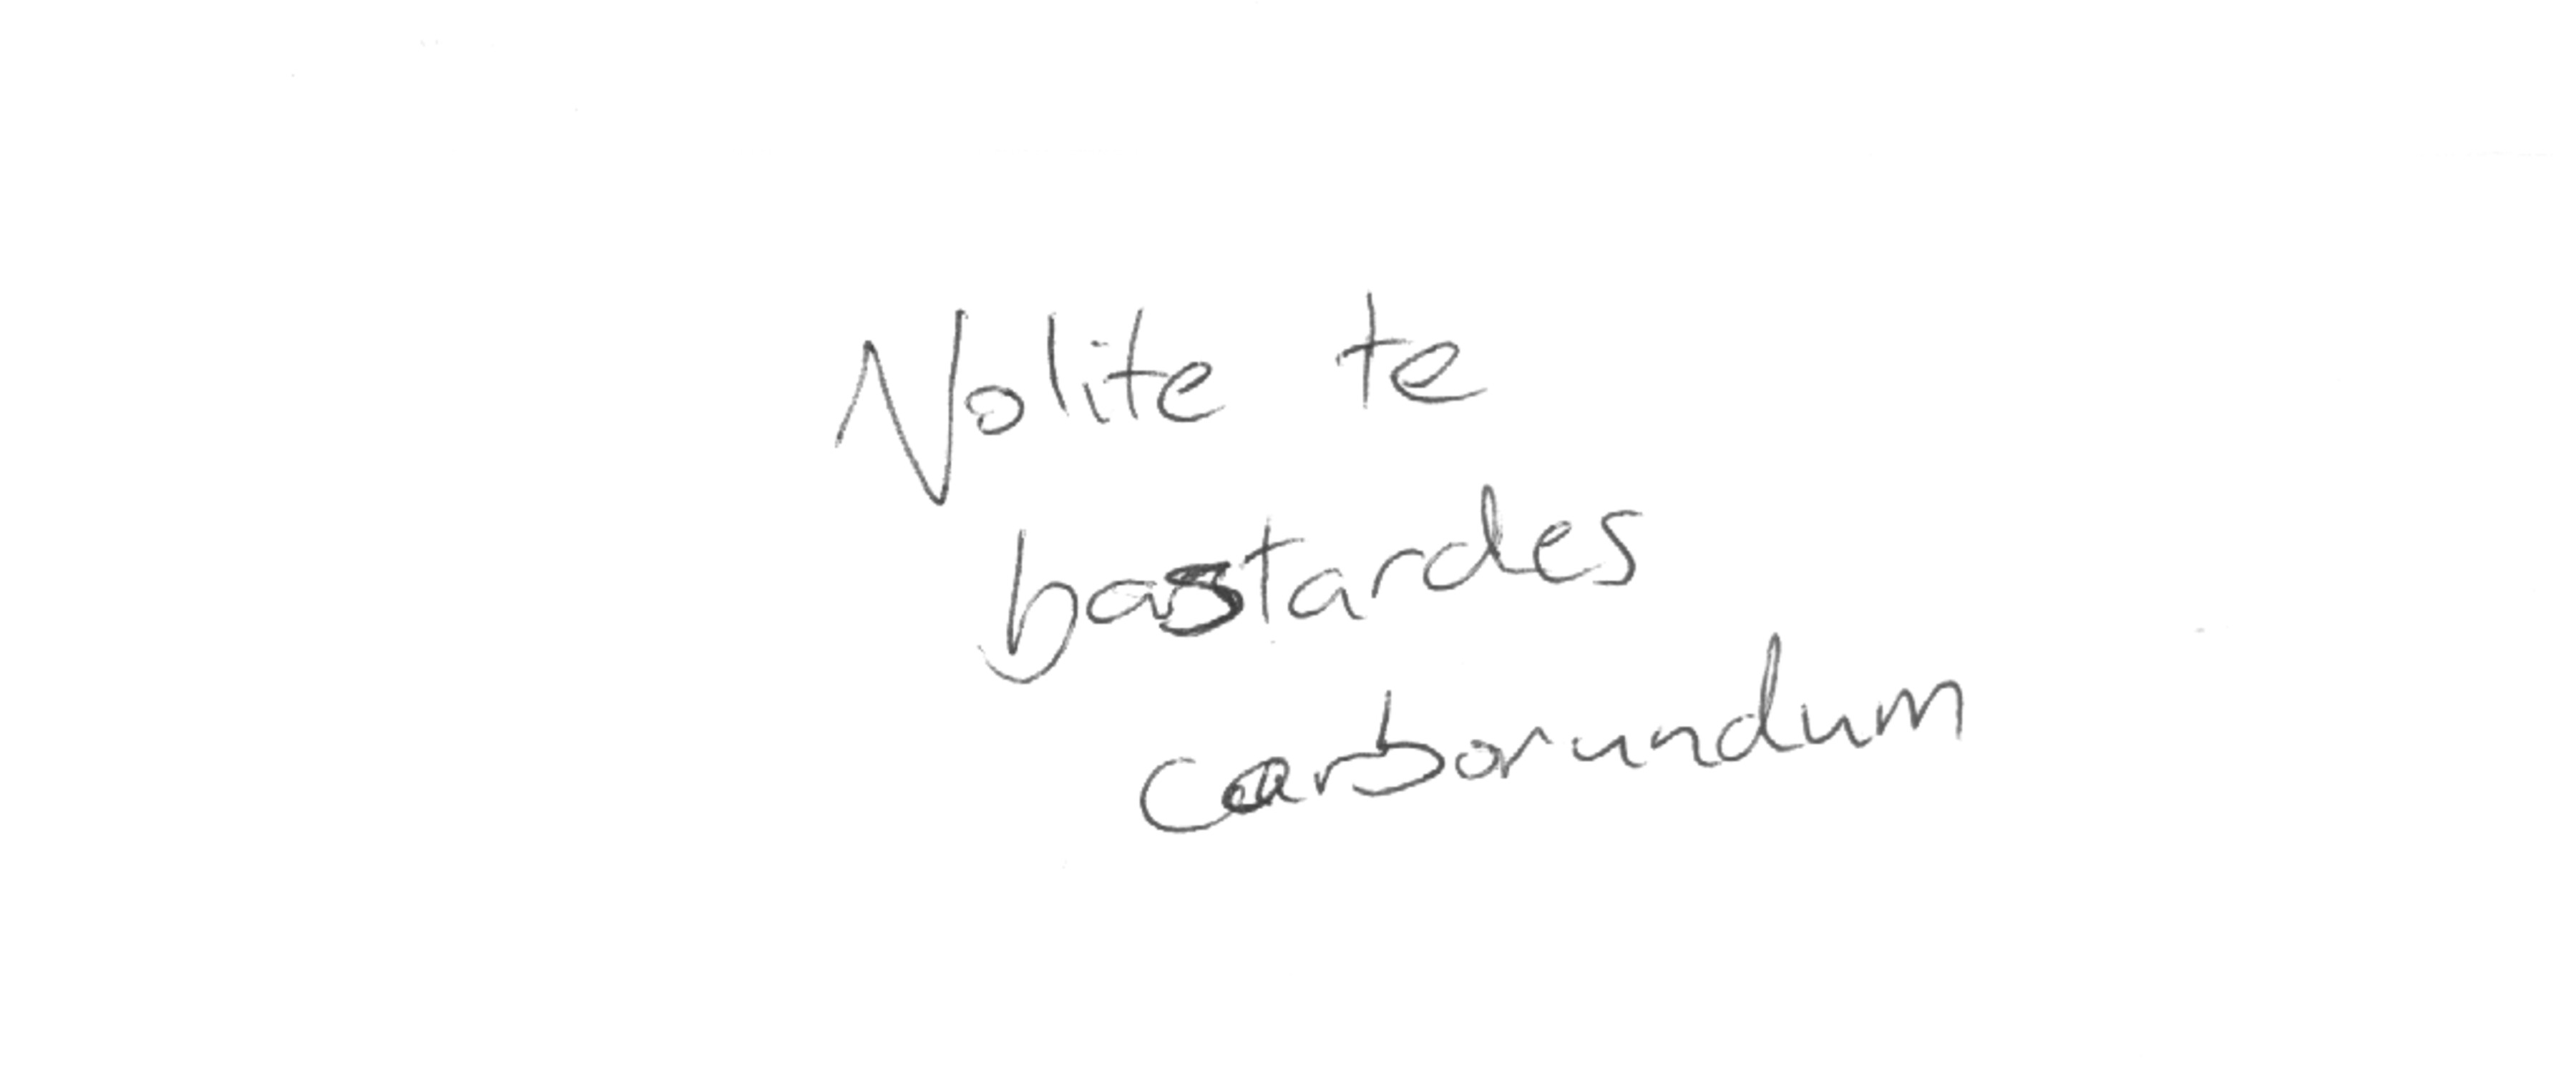 Nolite te
bastardes
carborundum